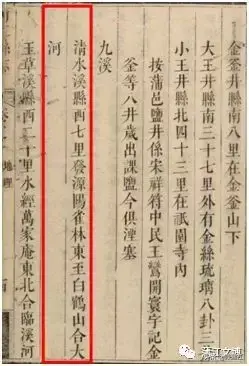 金釜井縣南八里在金釜山下
大王井縣南三十七里外有金絲琉璃八卦二
小王井縣北四十三里在祇園寺內
按蒲邑鹽井係宋祥符中民王鸞開寰宇記金
釜等八井歲出課鹽今俱湮塞
九溪
清水溪縣西七里發源陽雀林東至白鶴山合大
河
玉草溪縣西二十里水經萬家庵東北合臨溪河
地理
蒲江文通